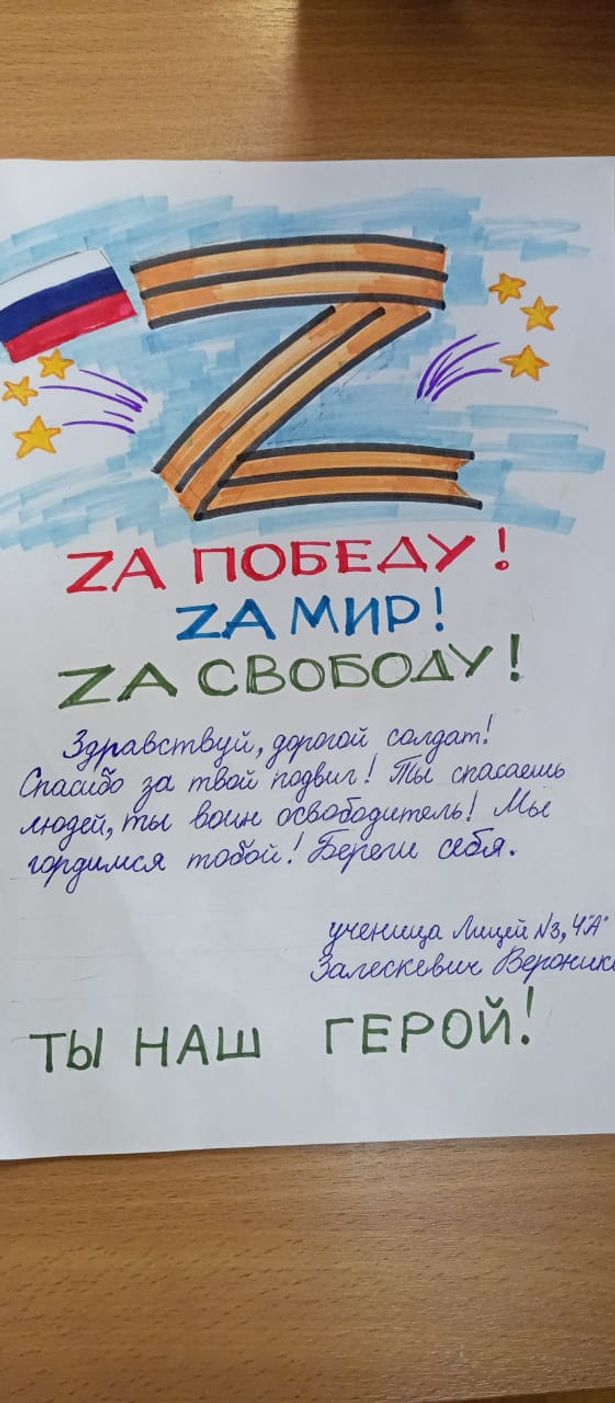 Z
ZА ПОБЕДУ!
ZА МИР!
ZА СВОБОДУ!
Здравствуй, дорогой солдат!
Спасибо за твой подвиг! Ты спасаешь
людей, ты воин освободитель! Мы
гордимся тобой! Береги себя.
ученица Лицей №3, 4"А"
Залескевич Вероник
ТЫ НАШ ГЕРОЙ!